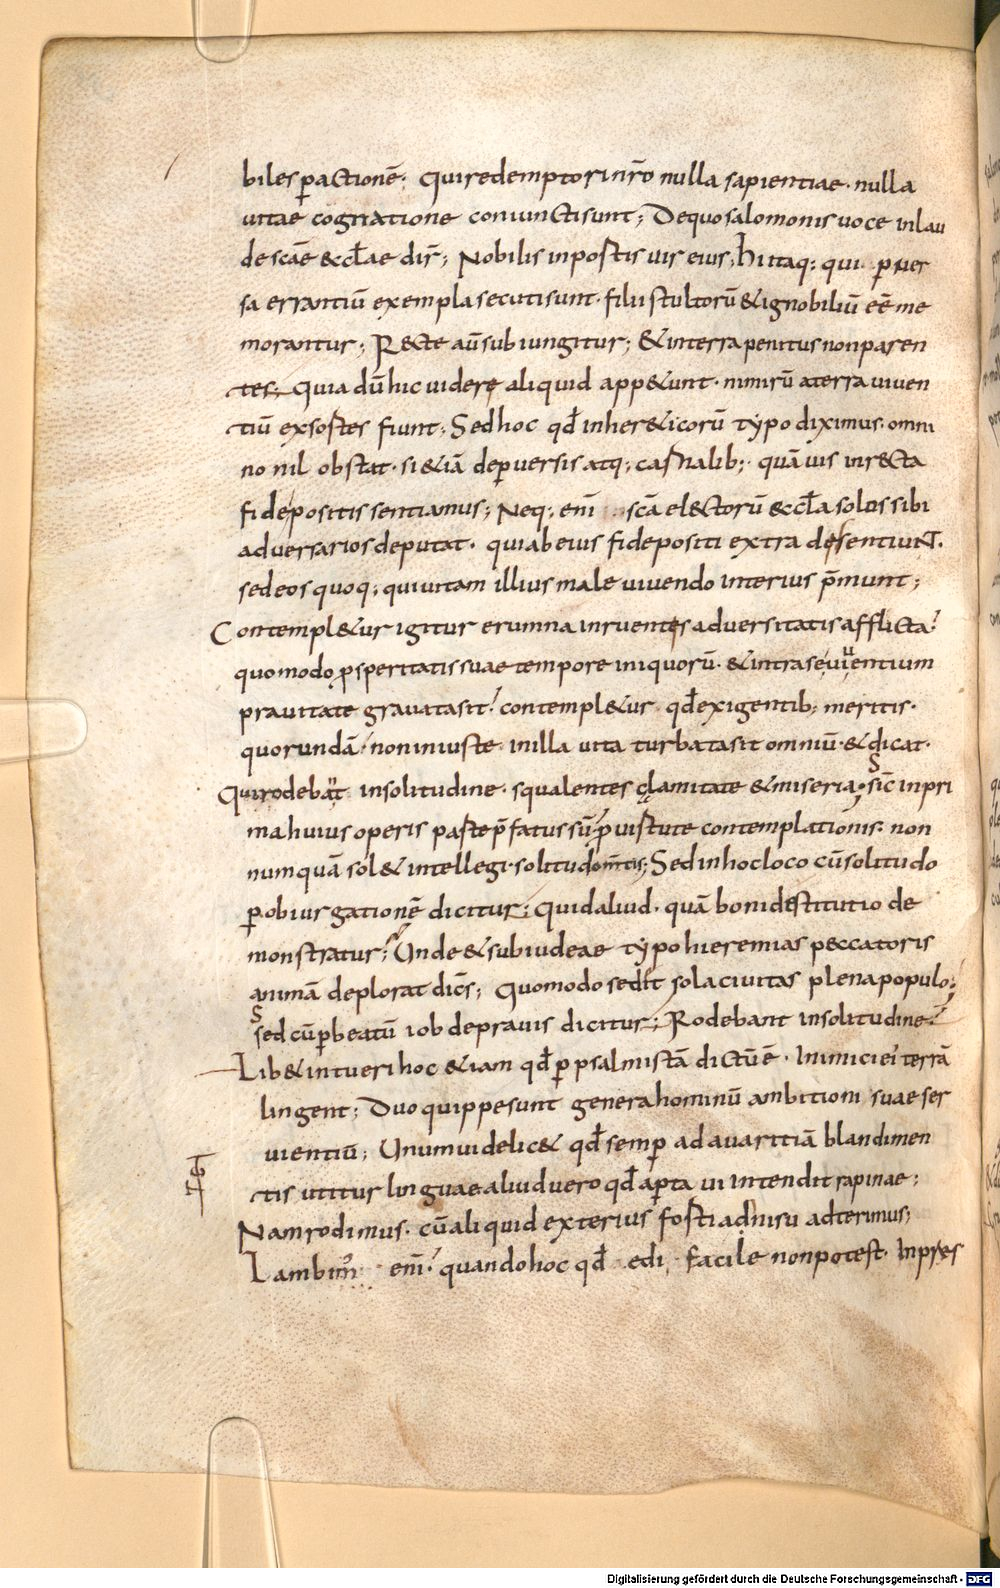 biles p̱actionē· Qui redemptori nr̄o nulla sapientiae· nulla
uitae cognatione coniuncti sunt; De quo salomonis uoce in lau
de scāe & ecl̄ae dir̄; Nobilis in portis uir eius; hi itaq; qui p̱uer
sa errantiū exempla secuti sunt· filii stultorū & ignobiliū eē me
morantur; R&cte aū subiungitur; & in terra penitus non paren
tes; Quia dū hic uidere aliquid app&unt· nimirū a terra uiuen
tiū exsortes fiunt; Sed hoc qd̄ in her&icorū typo diximus· omni
no nil obstat· si &iā de p̱uersis atq; carnalib; quāuis in recta
fide positis sentiamus; Neq; enī scā electorū ecl̄a solos sibi
aduersarios deputat· qui ab eius fide positi extra desentiunt·
sed eos quoq; qui uitam illius male uiuendo interius p̄munt;
Contempl&ur igitur erumna inruentes aduersitatis afflicta·
quomodo p̱speritatis suae tempore iniquorū· & intra se uiuentium
prauitate grauata sit· contempl&ur qd̄ exigentib; meritis·
quorundā non iniuste in illa uita turbata sit omniū· & dicat·
Qui rodebant in solitudine· squalentes calamitate & miseria· sic̄ in pri
ma huius operis parte p̄fatus sū p̱ uirtute contemplationis· non
numquā sol& intellegi solitudo m̄tis; Sed in hoc loco cū solitudo
p̱ obiurgationē dicitur; Quid aliud· quā boni destitutio de
monstratur; Unde & sub iudeae typo hieremias peccatoris
animā deplorat dic̄s; Quomodo sedit sola ciuitas plena populo;
sed cū p̱ beatū iob de prauis dicitur; Rodebant in solitudine·
Lib& intueri hoc &iam qd̄ p̱ psalmistā dictū ē· Inimici ei terrā
lingent; Duo quippe sunt genera hominū ambitioni suae ser
uientiū; Unum uidelic& qd̄ semp̱ ad auaritiā blandimen
tis utitur linguae aliud uero qd̄ ap̱ta ui intendit rapinae;
Nam rodimus· cū aliquid exterius forti adnisu adterimus;
Lambim̄ enī· quando hoc qd̄ edi facile non potest· inpres
Digitalisierung gefördert durch die Deutsche Forschungsgemeinschaft - DFG